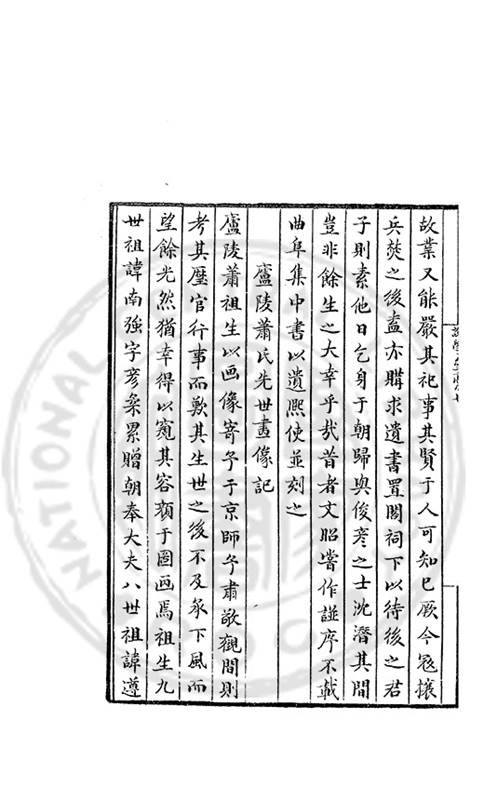 故業又能嚴其祀事其賢于人可知已厥今寇攘
兵燹之後盍亦購求遺書置閣祠下以待後之君
子則素他日乞身于朝歸與俊彦之士沈潛其間
豈非餘生之大幸乎哉昔者文昭嘗作諡序不載
曲阜集中書以遺熈使並刻之
廬陵蕭氏先世畫像記
廬陵蕭祖生以画像寄予于京師予肅敬觀間則
考其歴官行事而歎其生世之後不及承下風而
望餘光然猶幸得以寬其容顔于圖画焉祖生九
世祖諱南強字彦桑累贈朝奉大夫八世祖諱遵
NATIONAL